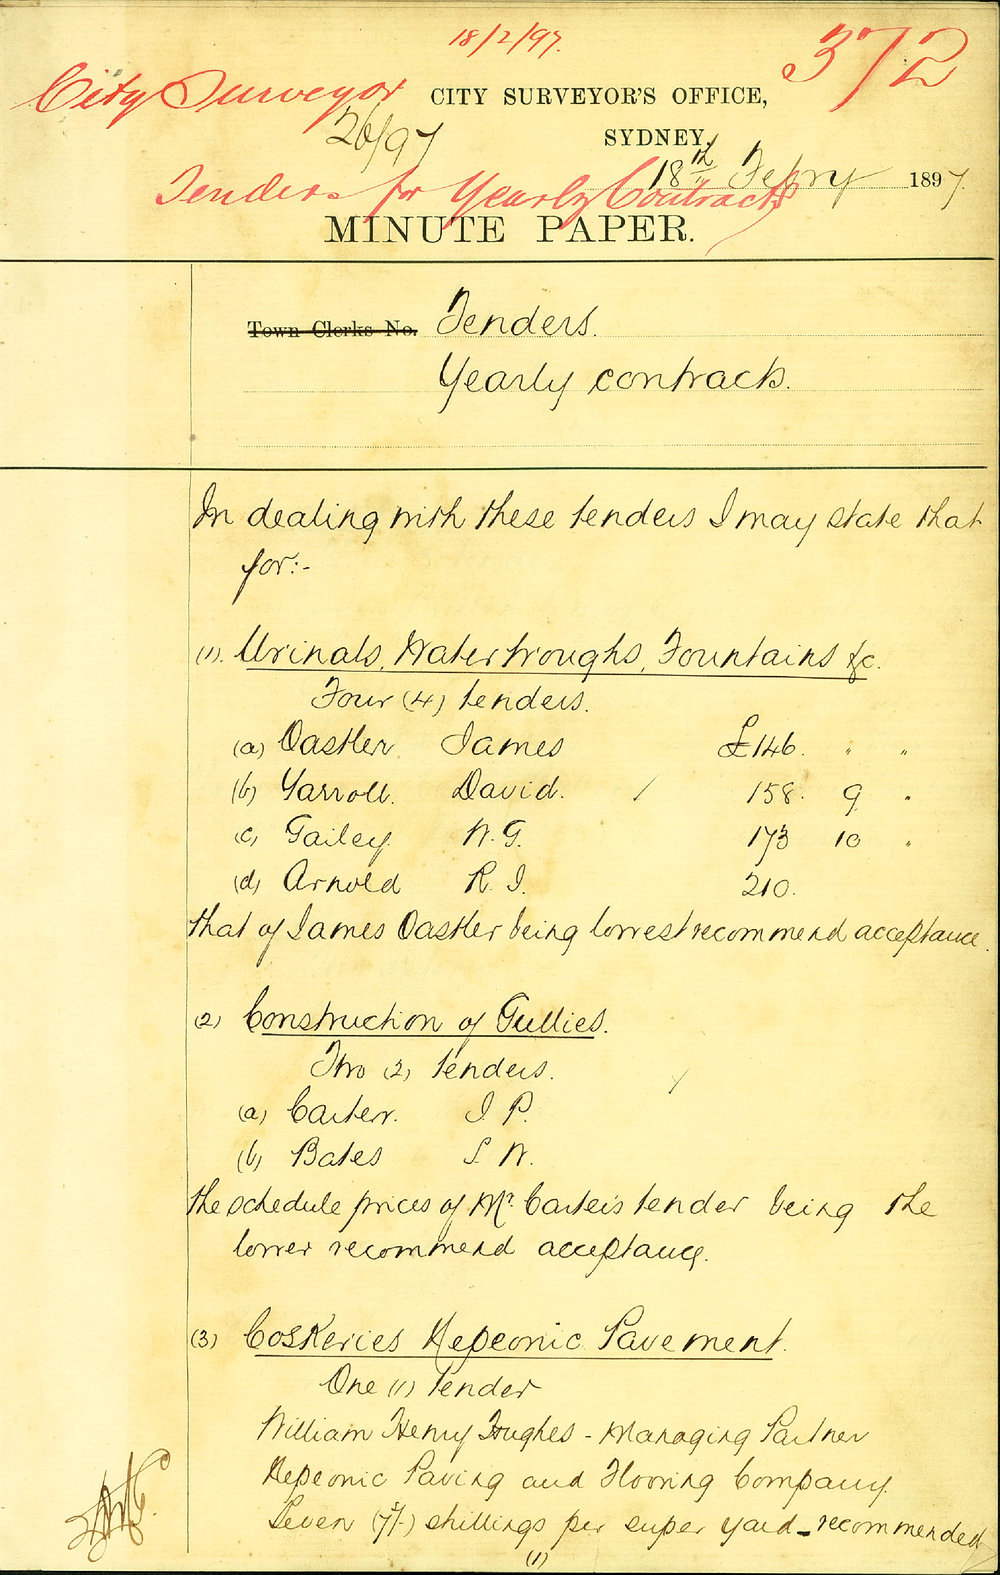 18/2/97.
372
City Surveyor
CITY SURVEYOR'S OFFICE,
26/97
SYDNEY,
18th Febry 1897
Tenders for Yearly Contracts
MINUTE PAPER.
Town Clerks No. Tenders.
Yearly contracts.
In dealing with these tenders I may state that
for:-
(1). Urinals, Water troughs, Fountains &c.
Four (4) tenders.
(a) Oastler James £146. " "
(b) Yarroll. David. / 158. 9 "
(c) Gailey W. G. 173 10 "
(d) Arnold R. I. 210.
that of James Oastler being lowest recommend acceptance.
(2) Construction of Gullies.
Two (2) tenders.
(a) Carter. J P.
(b) Bates S. W.
the schedule prices of Mr. Carter's tender being the
lower recommend acceptance.
(3) Coskeries Nepeonic Pavement.
One (1) tender
William Henry Hughes - Managing Partner
Nepeonic Paving and Flooring Company
Seven (7/-) shillings per super yard - recommended
(1)